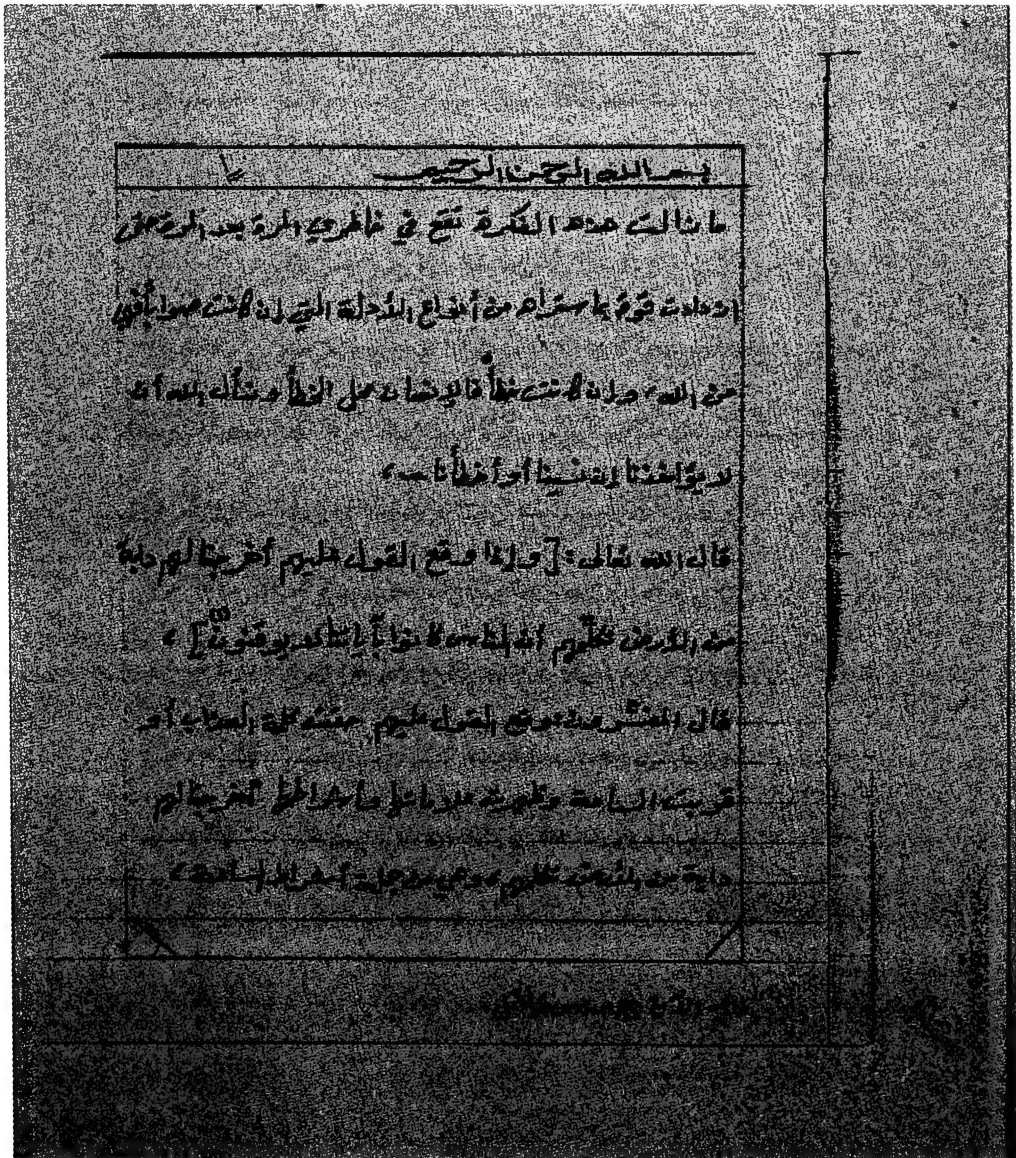 بسم الله الرحمن الرحيم
ما زالت هذه الفكرة تقع في خاطري المرة بعد المرة حتى
ازدادت قوة بما من أنواع الأدلة التي إن كانت صوابا فهي
من الله، وإن كانت خطأ فالإنسان محل الخطأ ونسأل الله أن
لا يؤاخذنا إن نسينا أو أخطأنا
قال الله تعالى: [وإذا وقع القول عليهم أخرجنا لهم دابة
من الأرض تكلمهم أن الناس كانوا بآياتنا لا يوقنون]،
قال المفسرون وقع القول عليهم حقت كلمة العذاب أو
قربت الساعة وظهرت علاماتها وأشراطها أخرجنا لهم
دابة من الأرض تكلمهم، وهي من جملة أشراط الساعة،